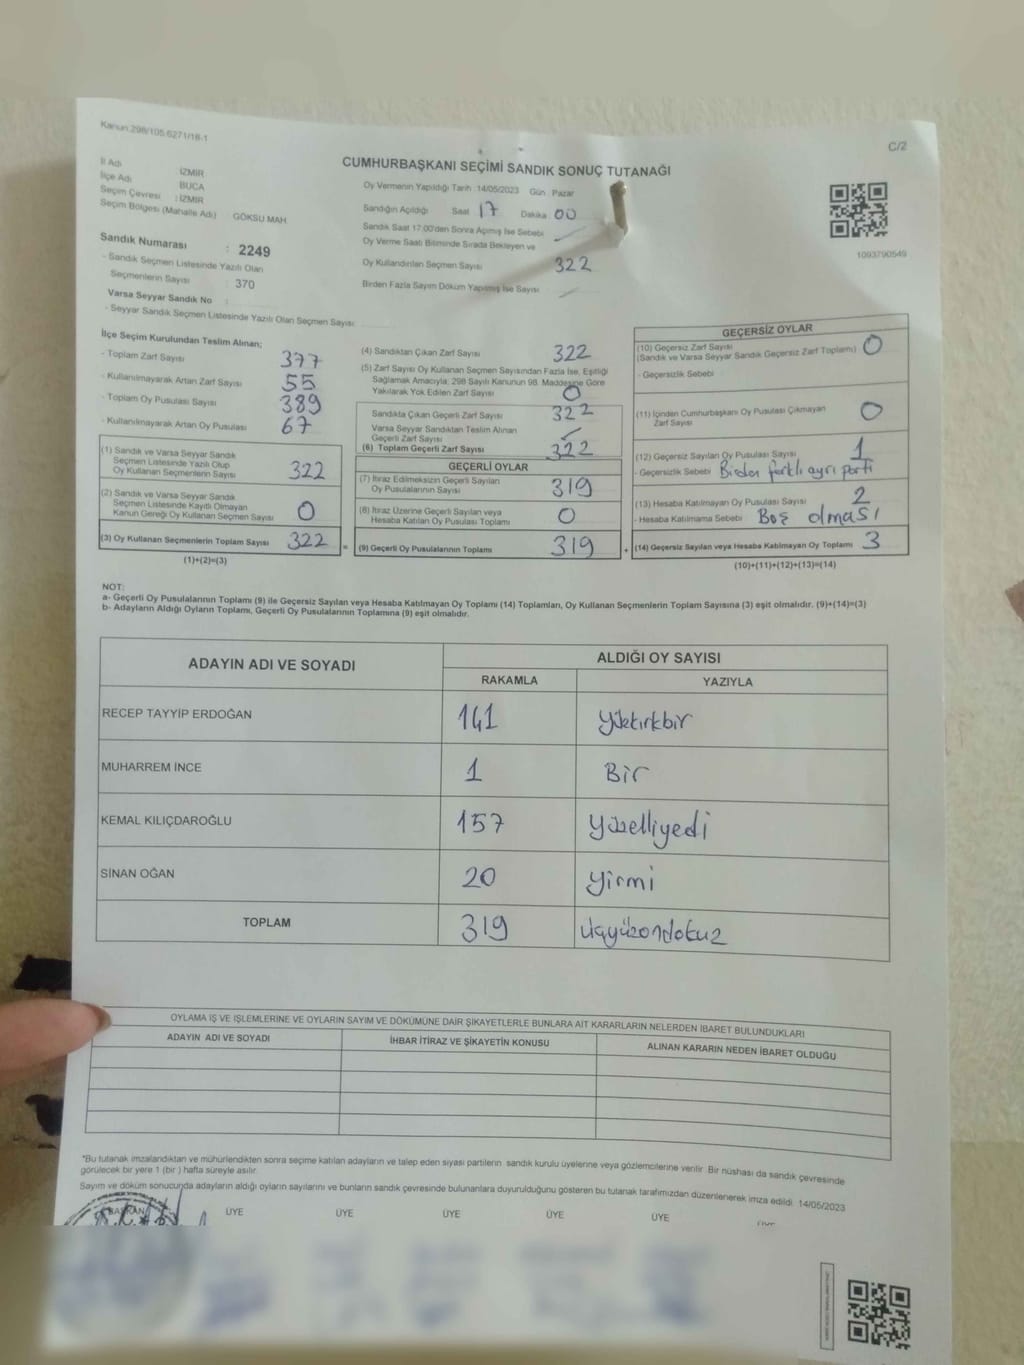 Kanun:298/105.6271/18-1
C/2
CUMHURBAŞKANI SEÇİMİ SANDIK SONUÇ TUTANAĞI
İl Adı İZMİR
İlçe Adı BUCA
Seçim Çevresi : İZMİR
Seçim Bölgesi (Mahalle Adı) GÖKSU MAH.
Sandık Numarası : 2249
- Sandık Seçmen Listesinde Yazılı Olan
Seçmenlerin Sayısı : 370
Varsa Seyyar Sandık No :
- Seyyar Sandık Seçmen Listesinde Yazılı Olan Seçmen Sayısı:
Oy Vermenin Yapıldığı Tarih :14/05/2023 Gün Pazar
Sandığın Açıldığı Saat 17 Dakika 00
Sandık Saat 17:00'den Sonra Açılmış İse Sebebi
Oy Verme Saati Bitiminde Sırada Bekleyen ve
Oy Kullandırılan Seçmen Sayısı 322
Birden Fazla Sayım Döküm Yapılmış İse Sayısı
1093790549
İlçe Seçim Kurulundan Teslim Alınan;
- Toplam Zarf Sayısı 377
- Kullanılmayarak Artan Zarf Sayısı 55
- Toplam Oy Pusulası Sayısı 389
- Kullanılmayarak Artan Oy Pusulası 67
(1) Sandık ve Varsa Seyyar Sandık
Seçmen Listesinde Yazılı Olup
Oy Kullanan Seçmenlerin Sayısı 322
(2) Sandık ve Varsa Seyyar Sandık
Seçmen Listesinde Kayıtlı Olmayan
Kanun Gereği Oy Kullanan Seçmen Sayısı 0
(3) Oy Kullanan Seçmenlerin Toplam Sayısı 322 =
(1)+(2)=(3)
(4) Sandıktan Çıkan Zarf Sayısı 322
(5) Zarf Sayısı Oy Kullanan Seçmen Sayısından Fazla İse, Eşitliği
Sağlamak Amacıyla; 298 Sayılı Kanunun 98. Maddesine Göre
Yakılarak Yok Edilen Zarf Sayısı 0
Sandıkta Çıkan Geçerli Zarf Sayısı 322
Varsa Seyyar Sandıktan Teslim Alınan
Geçerli Zarf Sayısı
(6) Toplam Geçerli Zarf Sayısı 322
GEÇERLİ OYLAR
(7) İtiraz Edilmeksizin Geçerli Sayılan
Oy Pusulalarının Sayısı 319
(8) İtiraz Üzerine Geçerli Sayılan ve
Hesaba Katılan Oy Pusulası Toplamı 0
(9) Geçerli Oy Pusulalarının Toplamı 319 +
GEÇERSİZ OYLAR
(10) Geçersiz Zarf Sayısı 0
(Sandık ve Varsa Seyyar Sandık Geçersiz Zarf Toplamı)
- Geçersizlik Sebebi
(11) İçinden Cumhurbaşkanı Oy Pusulası Çıkmayan
Zarf Sayısı 0
(12) Geçersiz Sayılan Oy Pusulası Sayısı 1
- Geçersizlik Sebebi Birden farklı ayrı parti
(13) Hesaba Katılmayan Oy Pusulası Sayısı 2
- Hesaba Katılmama Sebebi Boş olması
(14) Geçersiz Sayılan veya Hesaba Katılmayan Oy Toplamı 3
(10)+(11)+(12)+(13)=(14)
NOT:
a- Geçerli Oy Pusulalarının Toplamı (9) ile Geçersiz Sayılan veya Hesaba Katılmayan Oy Toplamı (14) Toplamları, Oy Kullanan Seçmenlerin Toplam Sayısına (3) eşit olmalıdır. (9)+(14)=(3)
b- Adayların Aldığı Oyların Toplamı, Geçerli Oy Pusulalarının Toplamına (9) eşit olmalıdır.
ADAYIN ADI VE SOYADI
ALDIĞI OY SAYISI
RAKAMLA YAZIYLA
RECEP TAYYİP ERDOĞAN 141 Yüzkırkbir
MUHARREM İNCE 1 Bir
KEMAL KILIÇDAROĞLU 157 Yüzelliyedi
SİNAN OĞAN 20 Yirmi
TOPLAM 319 üçyüzondokuz
OYLAMA İŞ VE İŞLEMLERİNE VE OYLARIN SAYIM VE DÖKÜMÜNE DAİR ŞİKAYETLERLE BUNLARA AİT KARARLARIN NELERDEN İBARET BULUNDUKLARI
ADAYIN ADI VE SOYADI İHBAR İTİRAZ VE ŞİKAYETİN KONUSU ALINAN KARARIN NEDEN İBARET OLDUĞU
*Bu tutanak imzalandıktan ve mühürlendikten sonra seçime katılan adayların ve talep eden siyasi partilerin sandık kurulu üyelerine veya gözlemcilerine verilir. Bir nüshası da sandık çevresinde
görülecek bir yere 1 (bir ) hafta süreyle asılır.
Sayım ve döküm sonucunda adayların aldığı oyların sayılarını ve bunların sandık çevresinde bulunanlara duyurulduğunu gösteren bu tutanak tarafımızdan düzenlenerek imza edildi. 14/05/2023
BAŞKAN ÜYE ÜYE ÜYE ÜYE ÜYE